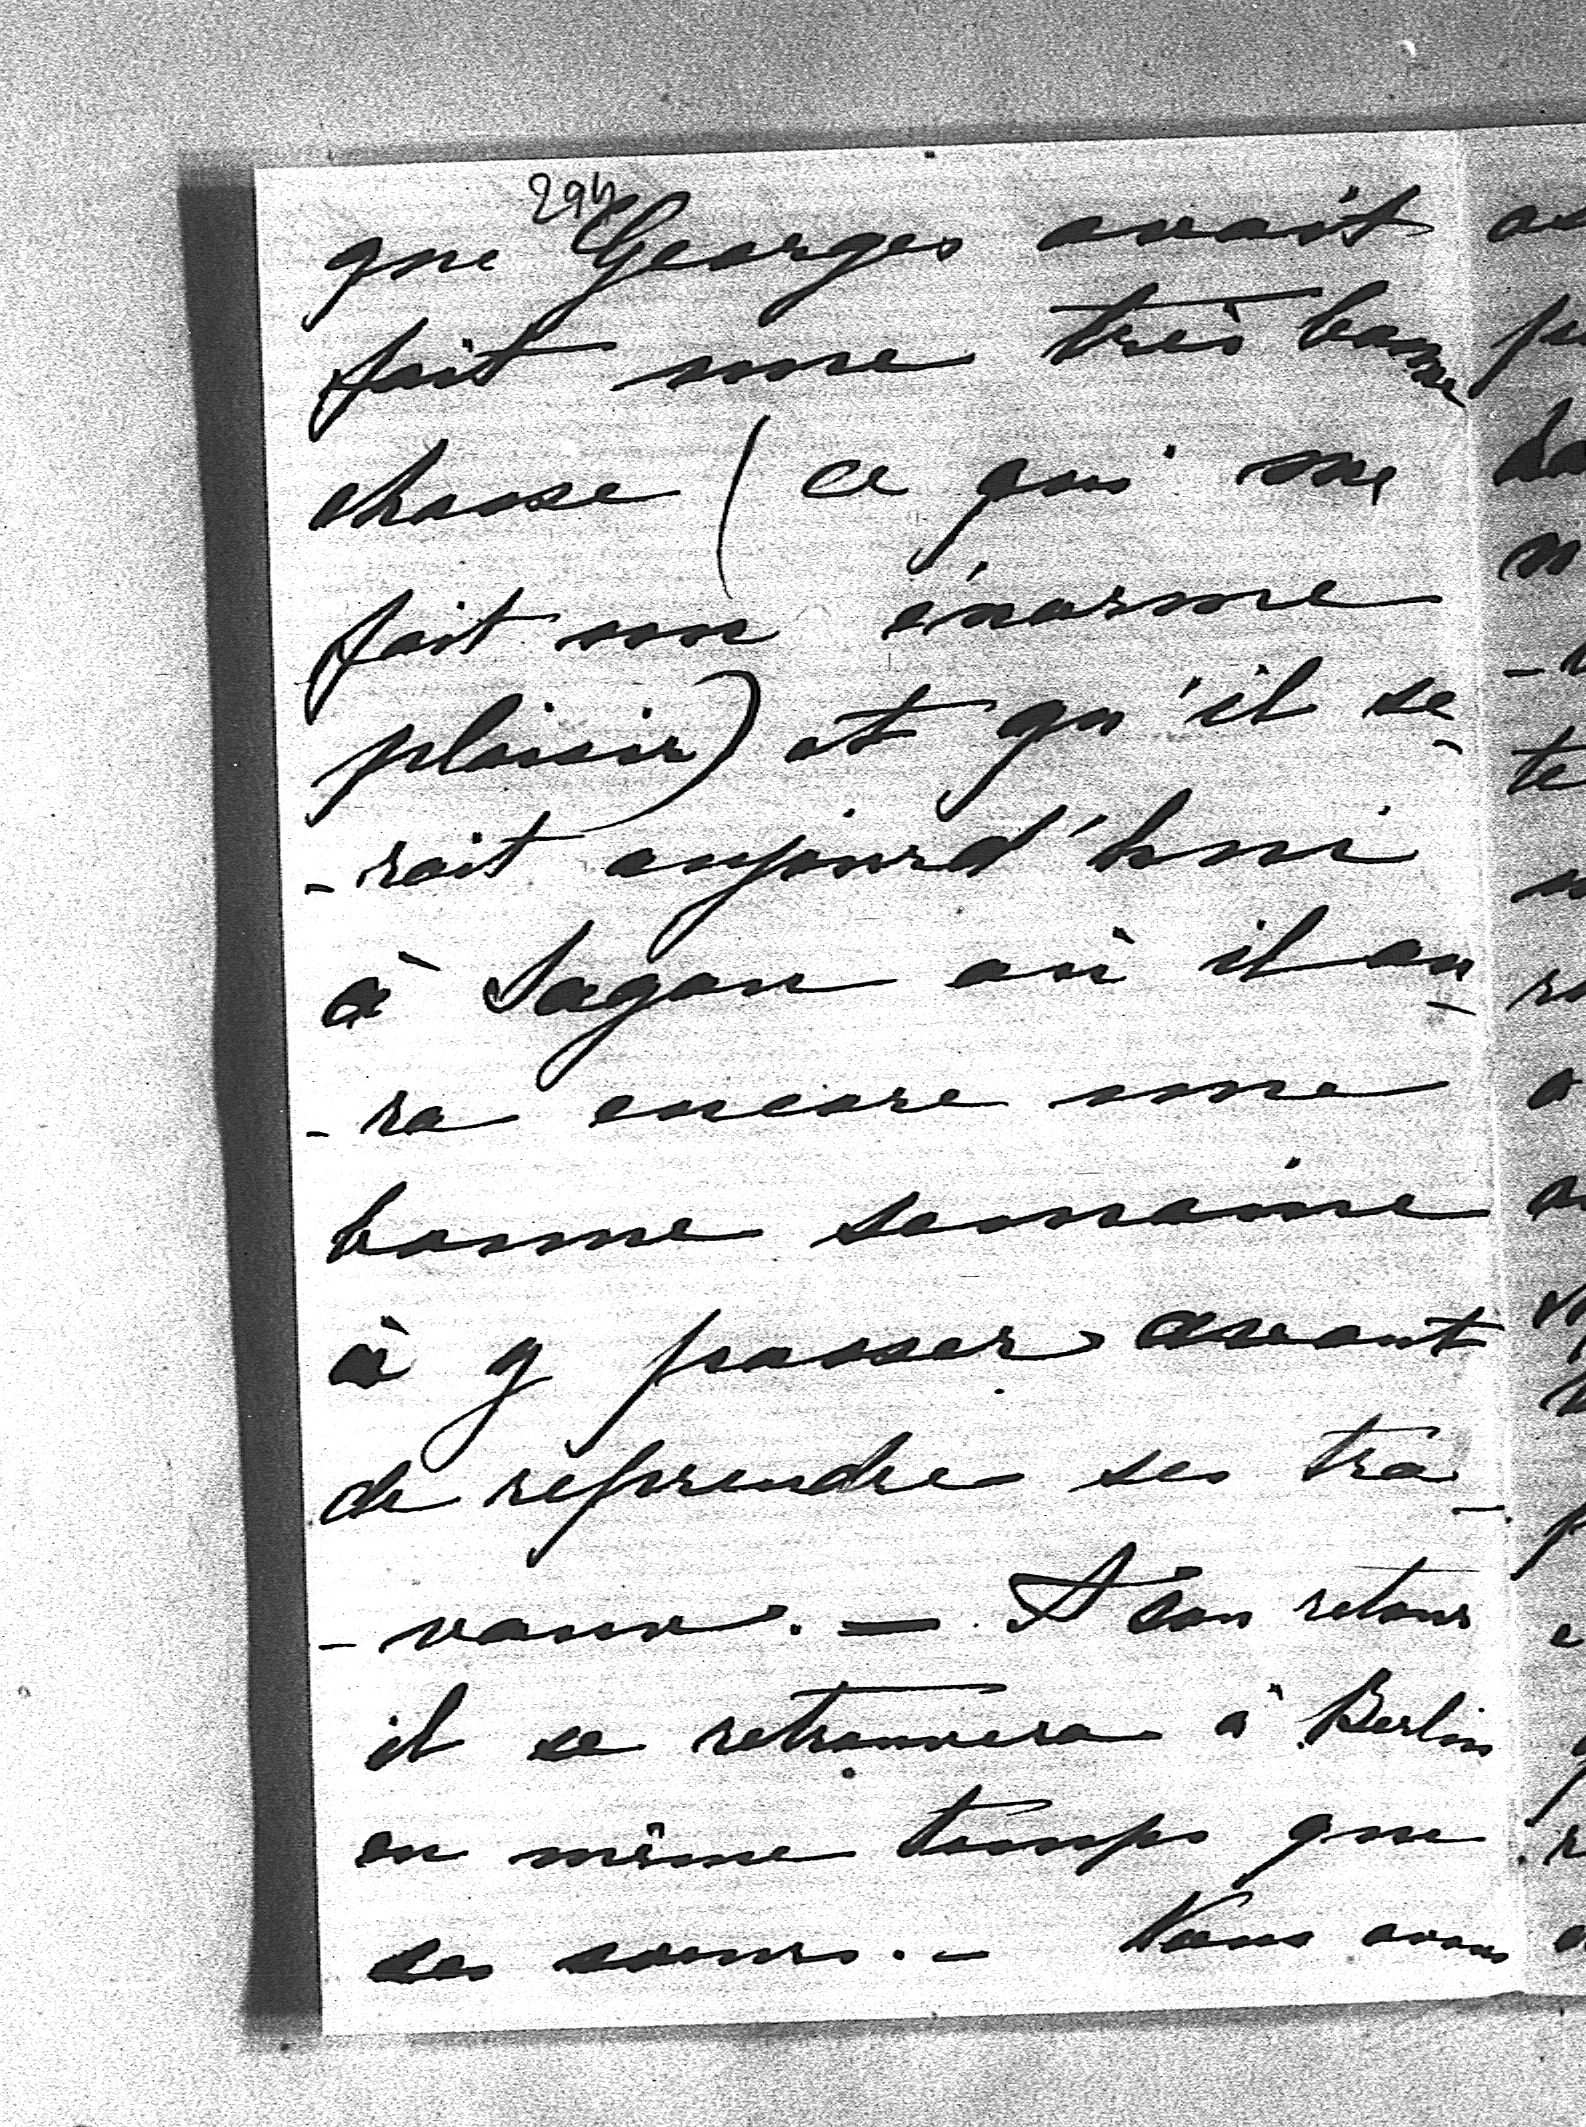 294
que Georges avait
fait une très bonne
chasse (ce qui me
fait un énorme
plaisir) et qu'il se-
-rait aujourd'hui
à Sagan où il au-
-ra encore une
bonne semaine
à y passer avant
de reprendre ses tra-
-vaux. — A son retour
il se retrouvera à Berlin
en même temps que
ses sœurs. — Nous avons